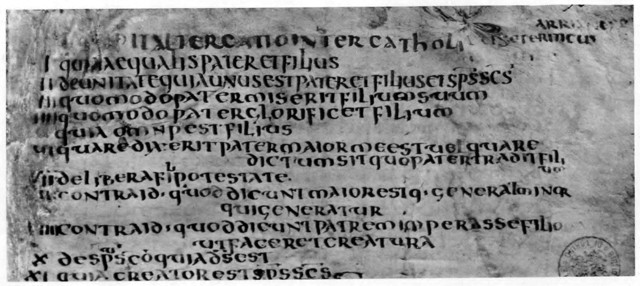 INCIPIT ALTERCATIO INTER CATHOLI
ARRIAN
I QUIA EQUALIS PATER ET FILIUS
II DE UNITATE QUIA UNUS EST PATER ET FILIUS ET SPS SCS
III QUOMODO PATER MISERIT FILIUM SUUM
IIII QUOMODO PATER GLORIFICET FILIUM
QUIA OMNP EST FILIUS
VI QUARE DIXERIT PATER MAIOR ME EST UEL QUARE
DICTUM SIT QUO PATER TRADIT FILI
UM
VII DE LIBERA FILI POTESTATE
CONTRA ID QUOD DICUNT MAIOR EST Q GENERAT MINOR
QUI GENERATUR
VIIII CONTRA ID QUOD DICUNT PATREM IMPERASSE FILIO
UT FACERET CREATURA
X DE SPS CO QUIA DS EST
XI QUIA CREATOR EST SPS SCS